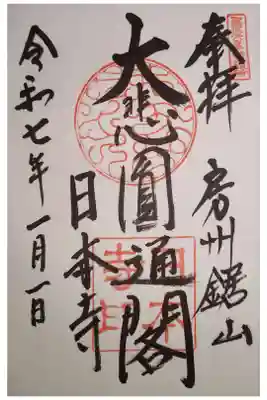 奉拝
房州鋸山
大悲圓通閣
日本寺
令和七年一月一日